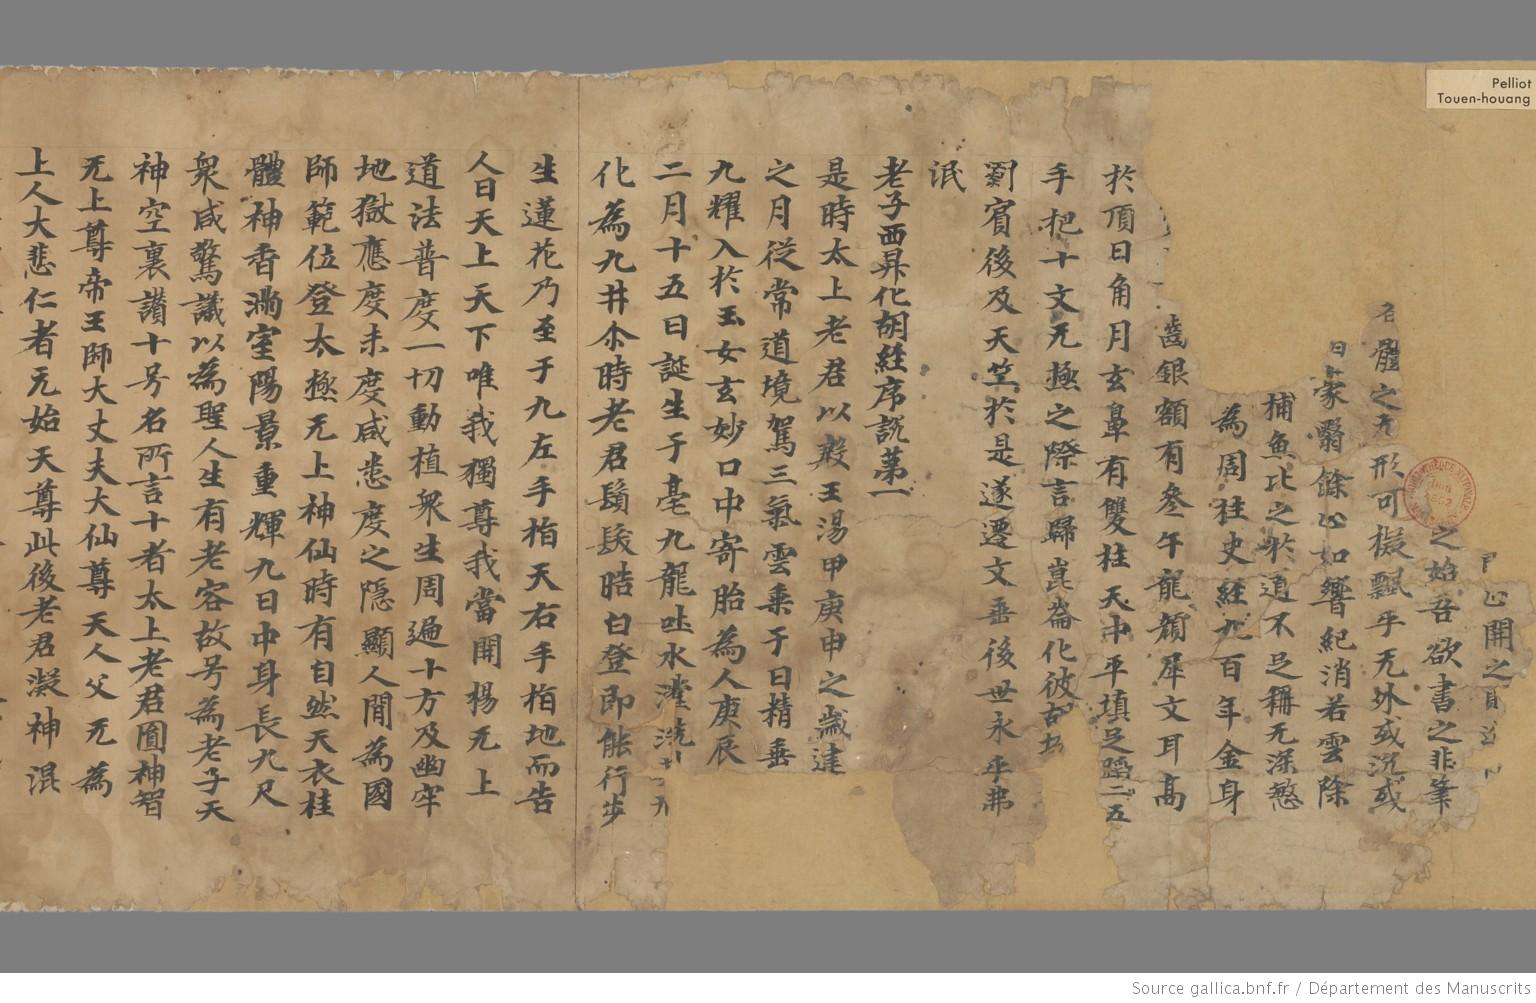 Pelliot
Touen-houang
開之
之始吾欲書之非筆
體之
形可擬飄乎无外或沉或
蒙翳餘心如響紀消若雲除
捕魚比之於道不足稱无深慜
為周柱史經九百年金身
齒銀額有叄午龍顏犀文耳高
於頂日角月玄鼻有雙柱天中平填足蹈二五
手把十文无極之際言歸崑崙化彼
罽賓後及天竺於是遂遷文垂後世永乎弗
泯
老子西昇化胡經序說第一
是時太上老君以殷王湯甲庚申之歲建
之月從常道境駕三氣雲乘于日精垂
九耀入於玉女玄妙口中寄胎為人庚辰
二月十五日誕生于亳九龍吐水灌洗
化為九井尒時老君鬚髮晧白登即能行步
生蓮花乃至于九左手指天右手指地而告
人曰天上天下唯我獨尊我當開楊无上
道法普度一切動植衆生周遍十方及幽牢
地獄應度未度咸悉度之隱顯人間為國
師範位登太極无上神仙時有自然天衣挂
體神香滿室陽景重輝九日中身長九尺
衆咸驚議以為聖人生有老容故号為老子天
神空裏讃十号名所言十者太上老君圎神智
无上尊帝王師大丈夫大仙尊天人父无為
上人大悲仁者元始天尊此後老君凝神混
Source gallica.bnf.fr / Département des Manuscrits